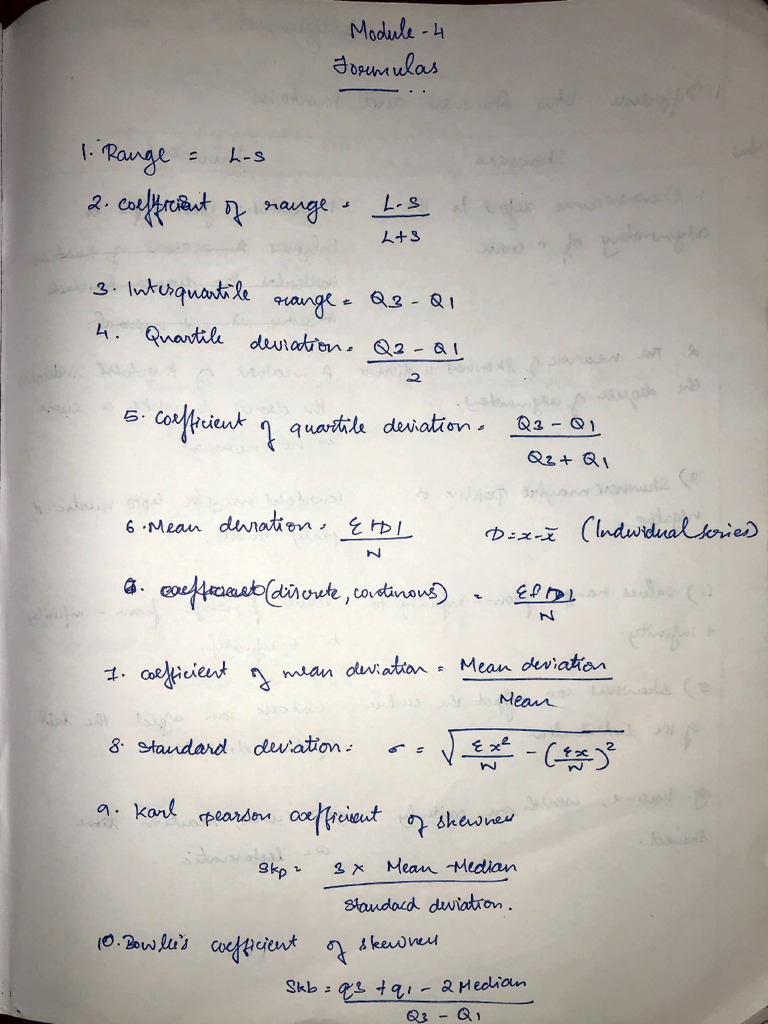 Module - 4
Formulas
1. Range = L-S
2. coefficient of range = L-S / L+S
3. Interquartile range = Q3 - Q1
4. Quartile deviation = Q3 - Q1 / 2
5. coefficient of quartile deviation = Q3 - Q1 / Q3 + Q1
6. Mean deviation = Σ|D| / N D = x - x̄ (Individual series)
(discrete, continous) = Σf|D| / N
7. coefficient of mean deviation = Mean deviation / Mean
8. Standard deviation = σ = √(Σx²/N - (Σx/N)²)
9. Karl pearson coefficient of skewness
Skp = 3 x Mean - Median / Standard deviation.
10. Bowlee's coefficient of skewness
Skb = q3 + q1 - 2 Median / Q3 - Q1